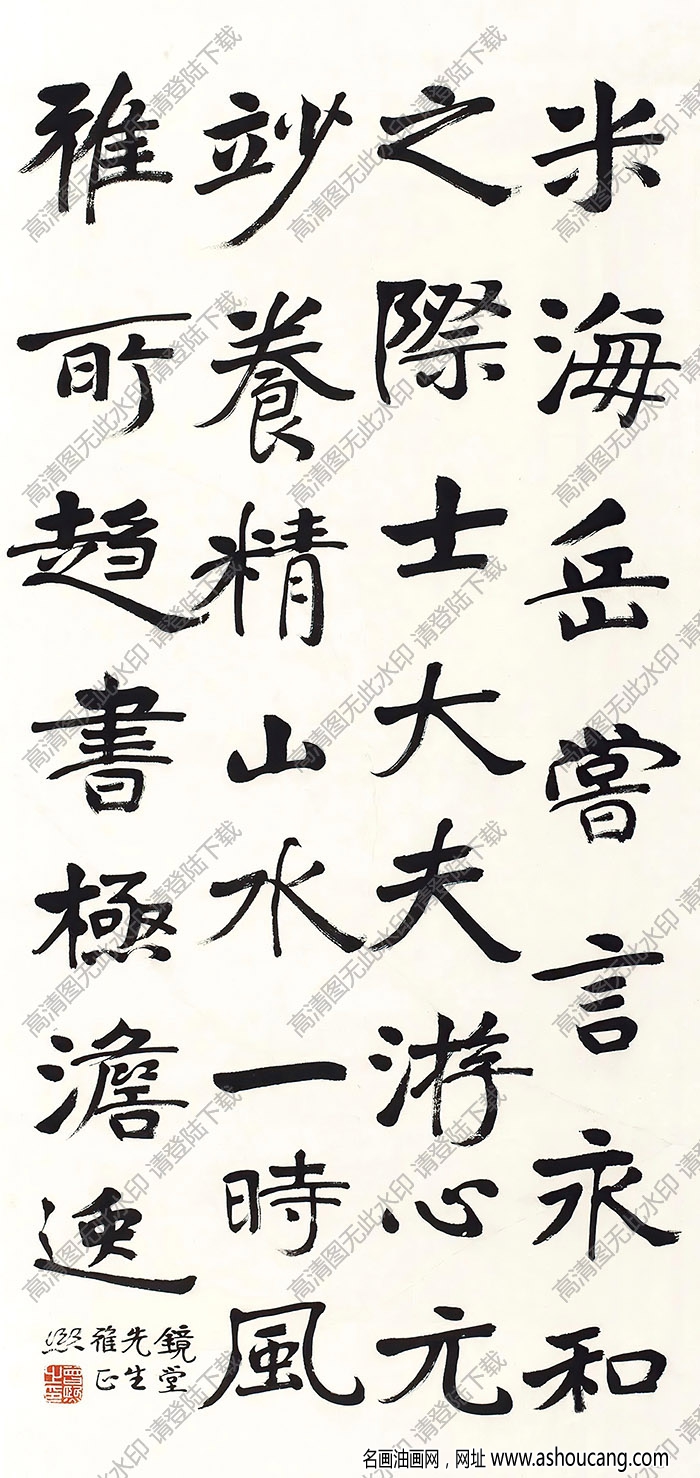 米海岳嘗言永和
之際士大夫游心元
竗養精山水一時風
雅所趨書極澹逸
鏡堂
先生
雅正
熙
名画油画网，网址 www.ashoucang.com
高清图无此水印 请登陆下载